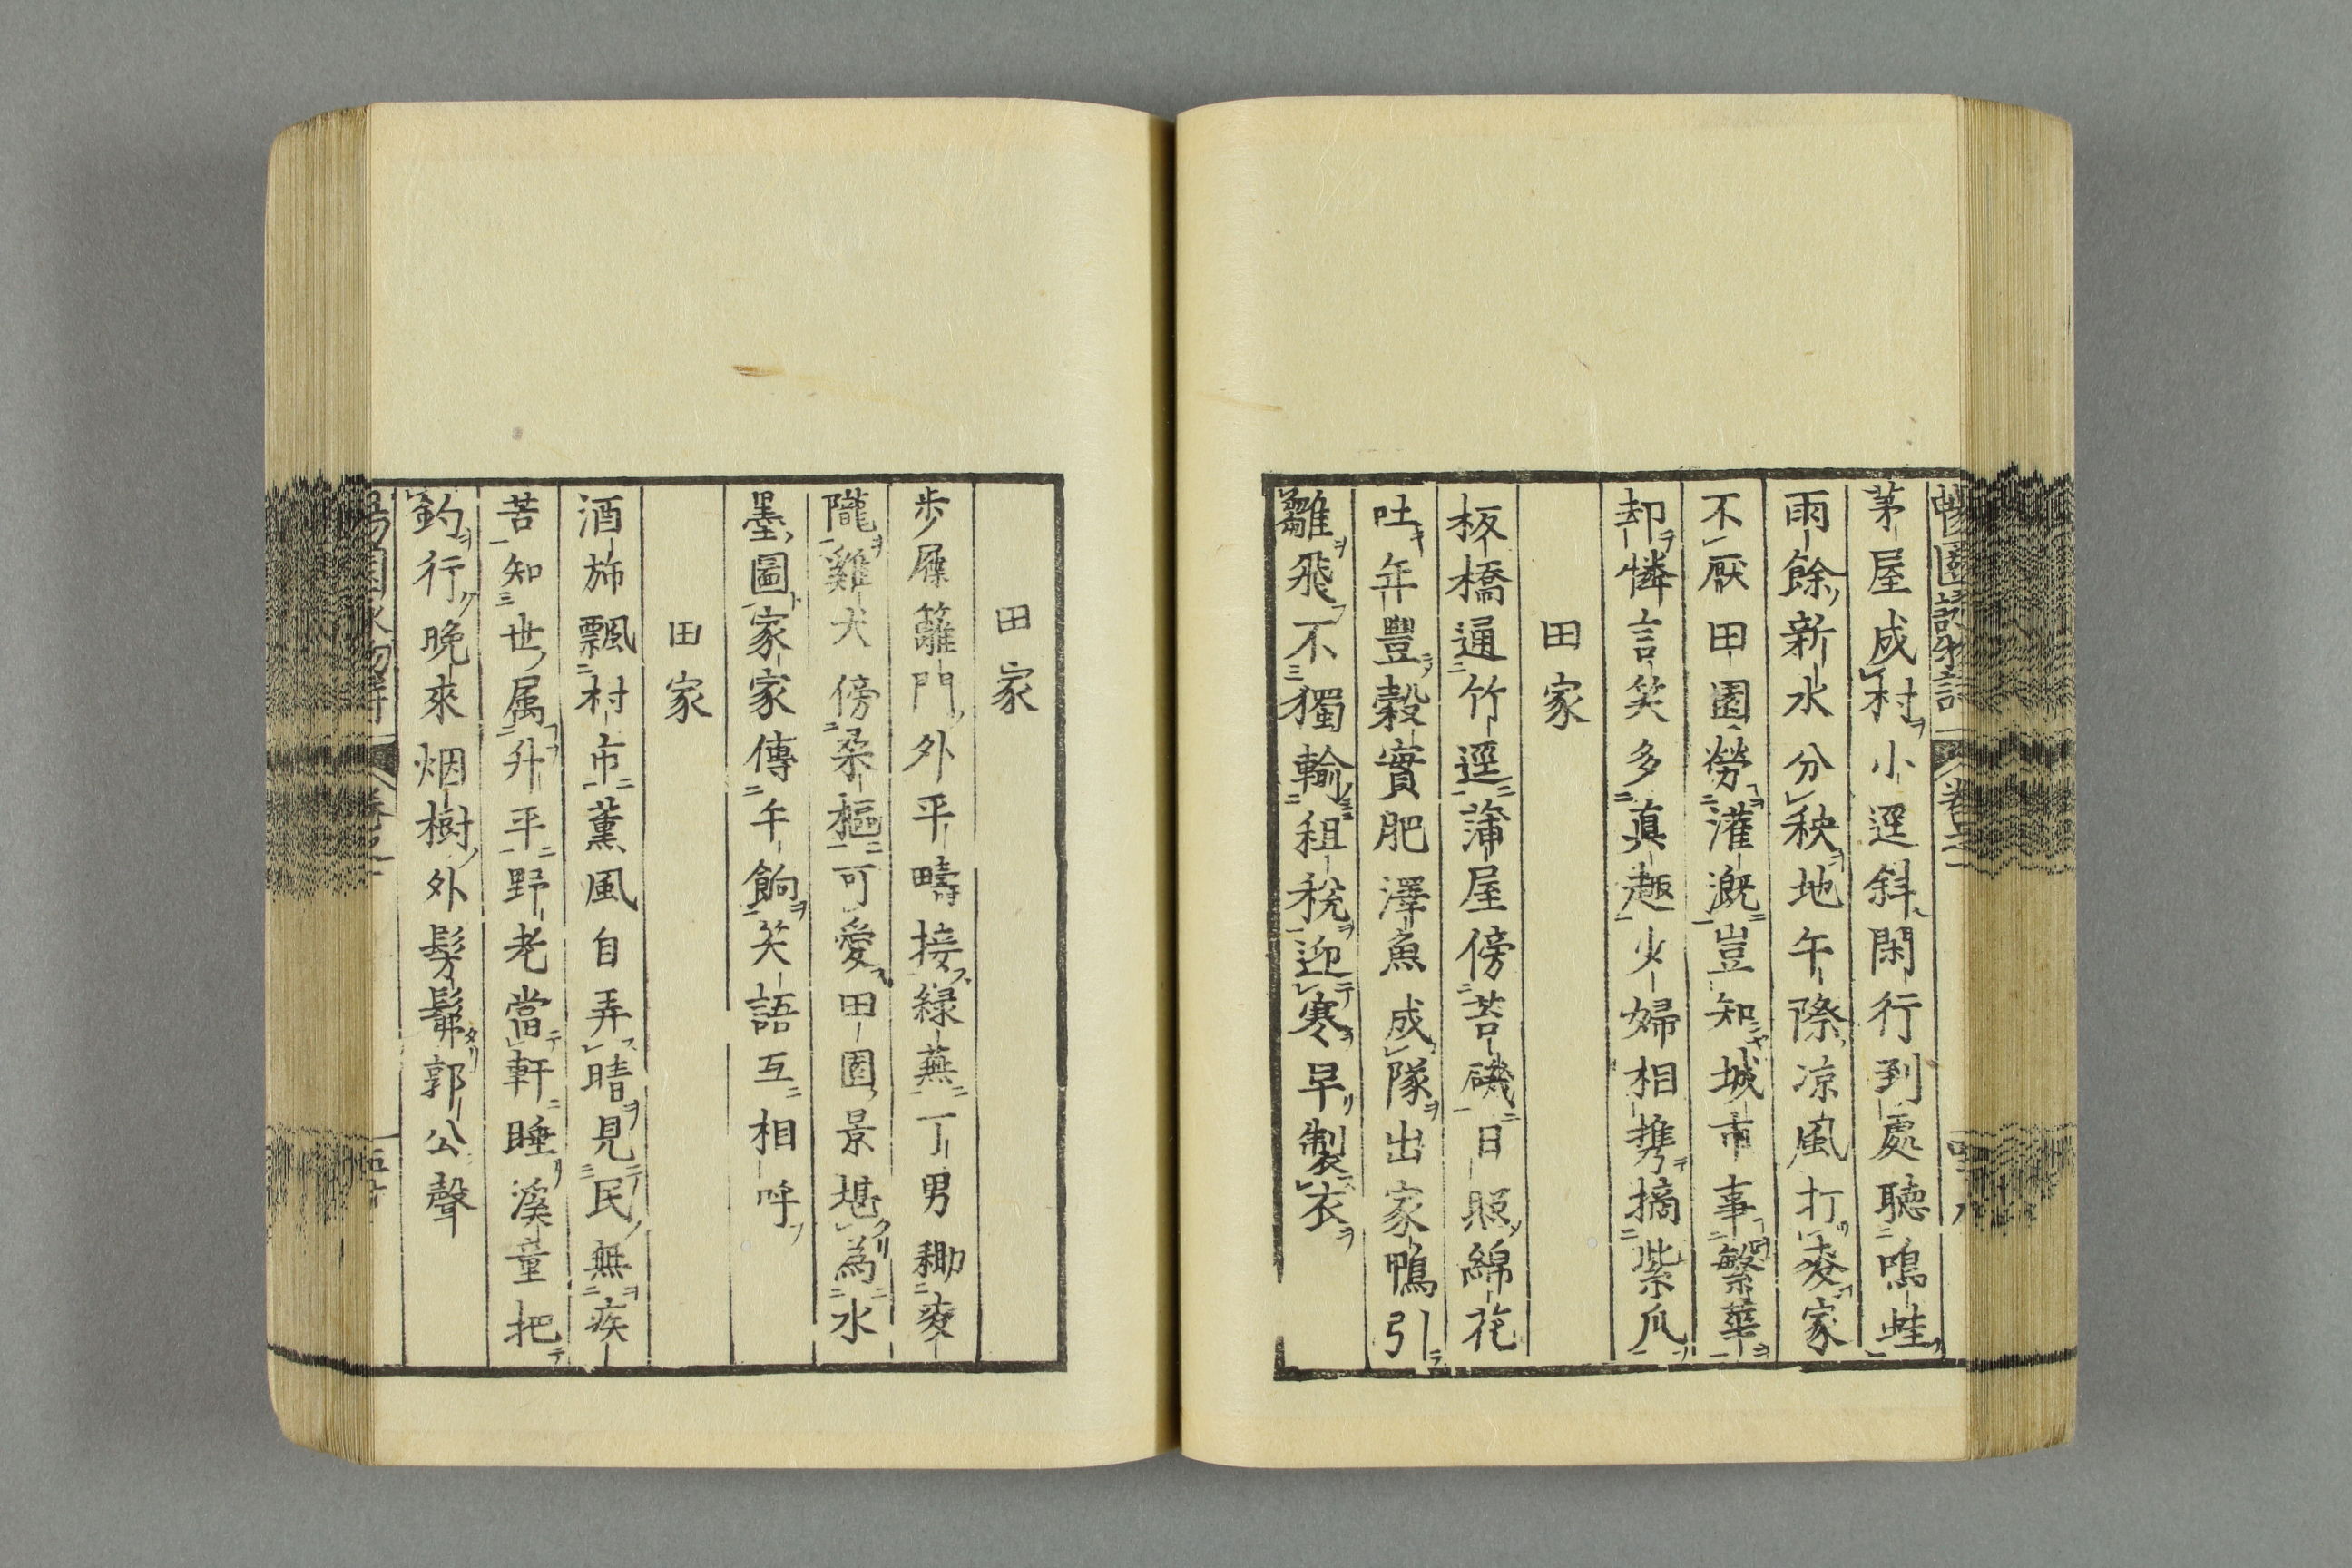 茅屋成村小逕斜閑行到處聴鳴蛙
雨餘新水分秧地午際凉風打麥家
不厭田園勞灌漑豈知城市事繁華
却憐言笑多真趣少婦相携摘紫瓜
田家
板橋通竹逕蒲屋傍苔磯日照綿花
吐年豐穀實肥澤魚成隊出家鴨引
雛飛不獨輸租稅迎寒早製衣
田家
歩屧籬門外平疇接緑蕪丁男耡麥
隴雞犬傍桑樞可愛田園景堪為水
墨圖家家傳午餉笑語互相呼
田家
酒斾飄村市薫風自弄晴見民無疾
苦知世属升平野老當軒睡溪童把
釣行晩來烟樹外髣髴郭公聲